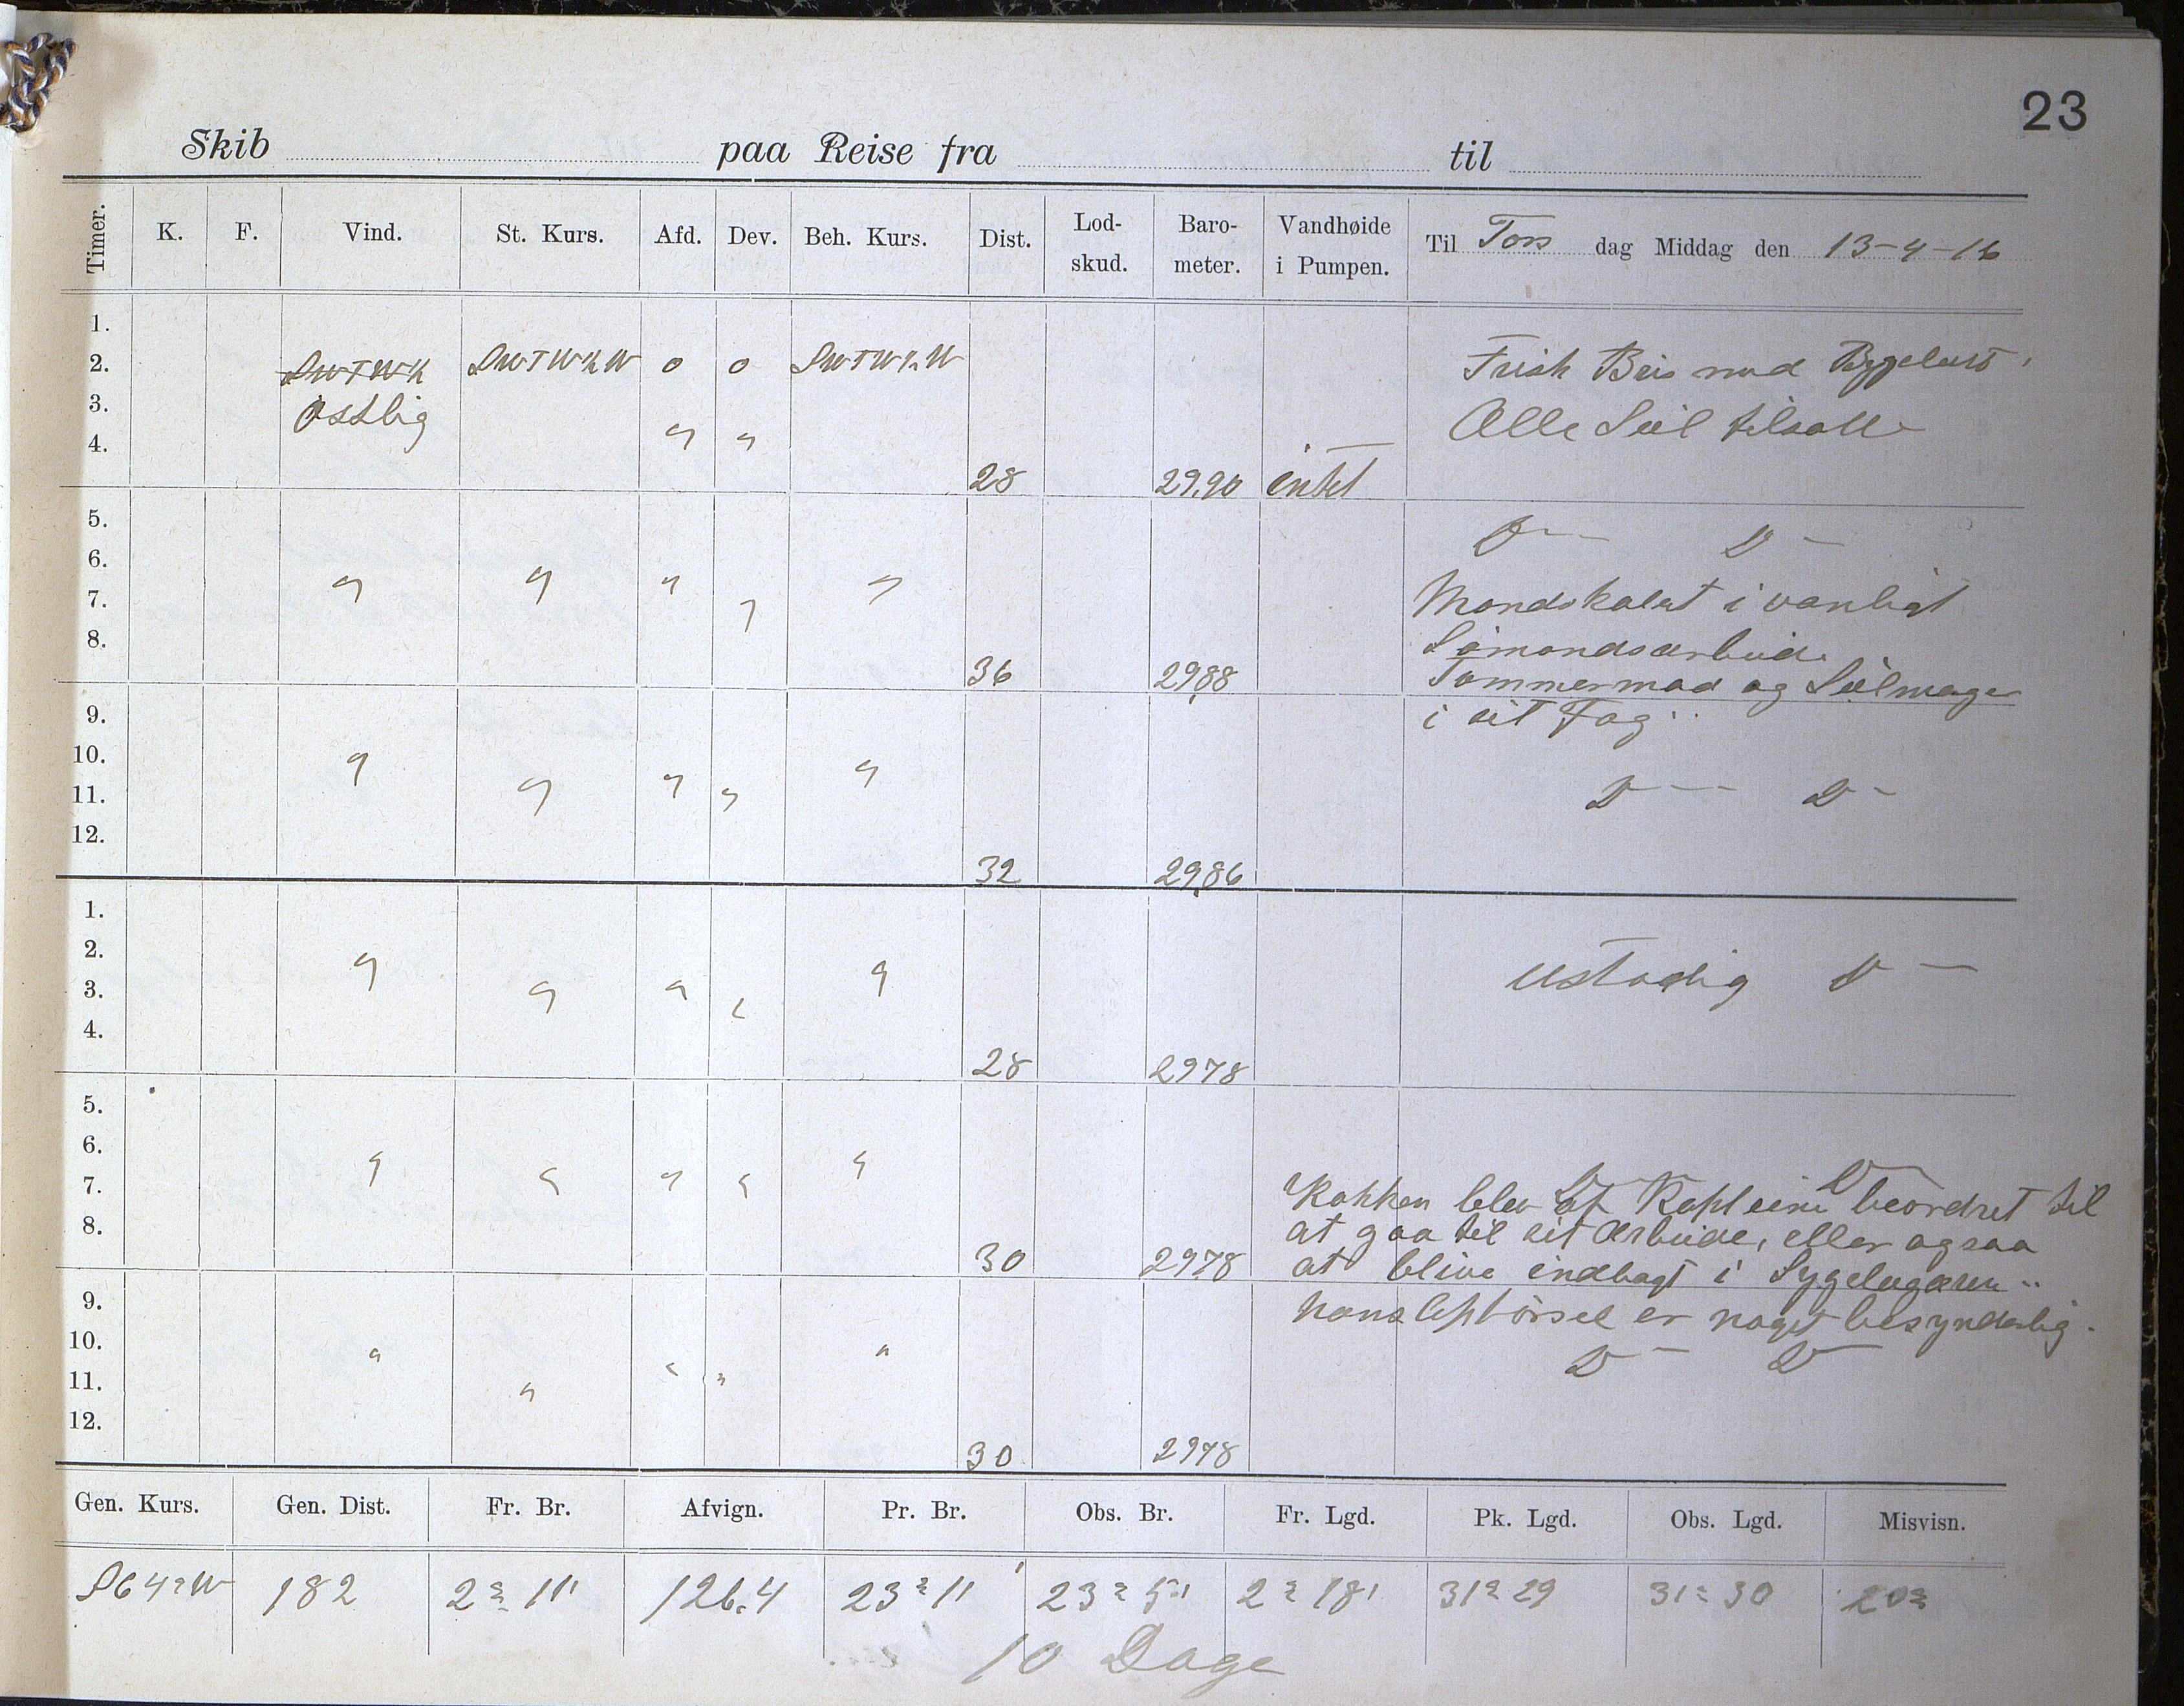 23
Skib paa Reise fra til
Timer. K. F. Vind. St. Kurs. Afd. Dev. Beh. Kurs. Dist. Lod-skud. Baro-meter. Vandhøide i Pumpen. Til Tors dag Middag den 13-4-16
1.
2. SWTWK SWTWKW o o SWTWKW Frisk Bris med Bygeluft,
3. Ostlig Alle Seil tilsatte
4. " "
28 29.90 intet
5. D — D —
6.
7. " " " " " Mandskabet i vanligt
8. Sømandsarbeide
36 29,88 Tømmermad og Seilmager
9. i sit Fag..
10. " "
11. " " " D — — D —
12.
32 29,86
1.
2. "
3. " " " " ustadig D —
4.
28 2978
5.
6. D D —
7. " " " " " Kokken blev af Kapteine beordret til
8. at gaa til sit Arbeide, eller ogsaa
30 2978 at blive indlagt i Sygelugaren..
9. hans Opførsel er noget besynderlig.
10. " " D — D —
11. " " "
12.
30 2978
Gen. Kurs. Gen. Dist. Fr. Br. Afvign. Pr. Br. Obs. Br. Fr. Lgd. Pk. Lgd. Obs. Lgd. Misvisn.
S64°W 182 2° 11' 126.4 23° 11' 23° 5' 2° 18' 31° 29 31° 30 20°
10 Dage